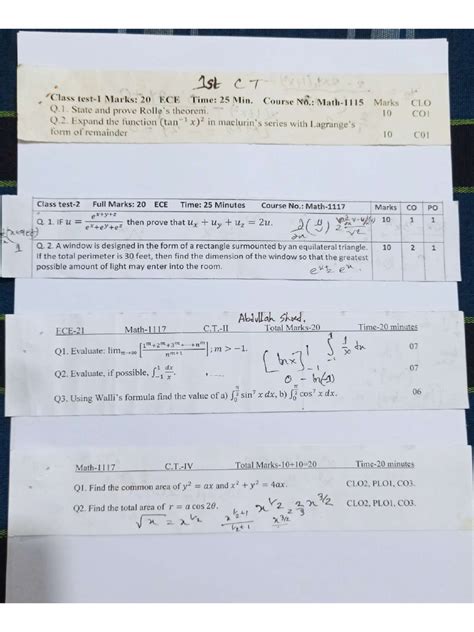 1st C T
Class test-1 Marks: 20 ECE Time: 25 Min. Course No.: Math-1115 Marks CLO
Q.1. State and prove Rolle's theorem. 10 CO1
Q.2. Expand the function (tan⁻¹ x)² in maclurin's series with Lagrange's
form of remainder 10 C01
Class test-2 Full Marks: 20 ECE Time: 25 Minutes Course No.: Math-1117 Marks CO PO
Q. 1. IF u = e^(x+y+z) / (e^x+e^y+e^z) then prove that u_x + u_y + u_z = 2u. 10 1 1
Q. 2. A window is designed in the form of a rectangle surmounted by an equilateral triangle. 10 2 1
If the total perimeter is 30 feet, then find the dimension of the window so that the greatest
possible amount of light may enter into the room.
Abdullah
ECE-21 Math-1117 C.T.-II Total Marks-20 Time-20 minutes
Q1. Evaluate: lim_(n→∞) [(1^m+2^m+3^m+⋯+n^m) / n^(m+1)]; m > −1. 07
[ln x] ∫ 1/x dx
Q2. Evaluate, if possible, ∫_(−1)^1 dx/x. 07
0 - ln(-1)
Q3. Using Walli's formula find the value of a) ∫_0^(π/2) sin⁷ x dx, b) ∫_0^(π/2) cos⁷ x dx. 06
Math-1117 C.T.-IV Total Marks-10+10=20 Time-20 minutes
Q1. Find the common area of y² = ax and x² + y² = 4ax. CLO2, PLO1, CO3.
Q2. Find the total area of r = a cos 2θ. CLO2, PLO1, CO3.
x^(1/2) = 2/3 x^(3/2)
√x = x^(1/2) x^(1/2+1) / (1/2+1) x^(3/2)